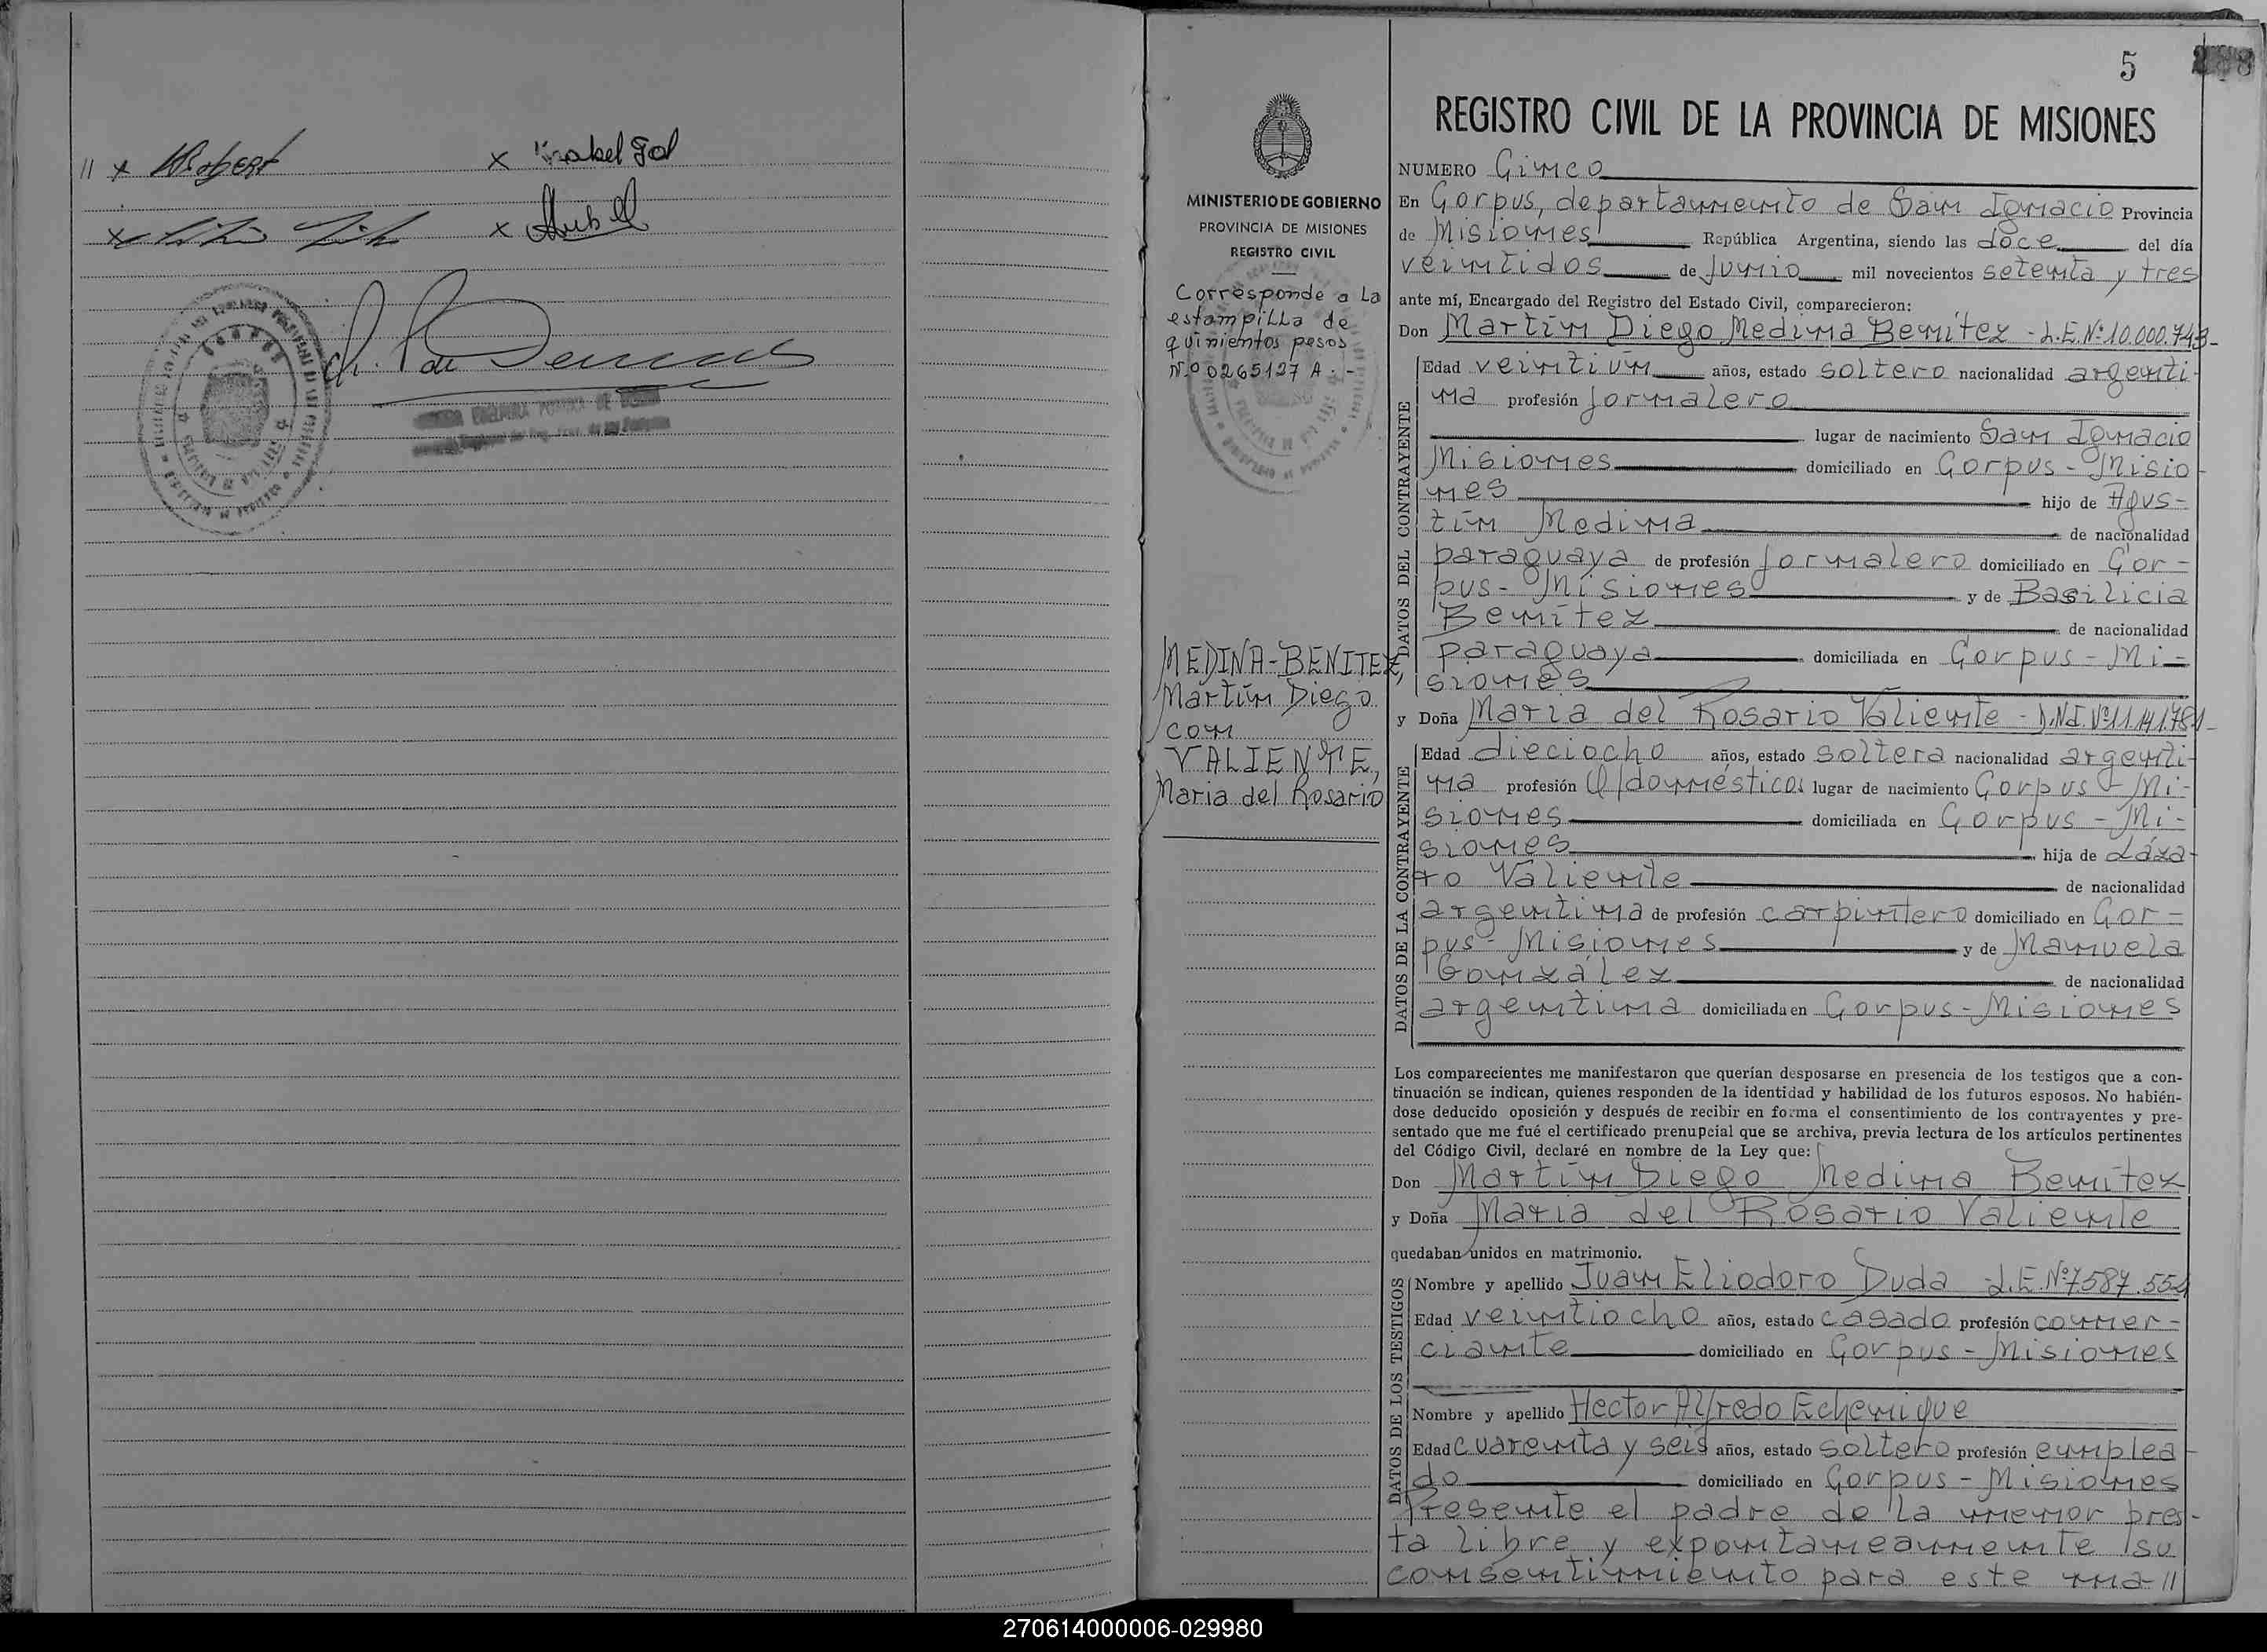 Isabel Gol
5
REGISTRO CIVIL DE LA PROVINCIA DE MISIONES
MINISTERIO DE GOBIERNO
PROVINCIA DE MISIONES
REGISTRO CIVIL
Corresponde a la
estampilla de
quinientos pesos
N.º 0265127 A.-
MEDINA-BENITEZ,
Martín Diego
con
VALIENTE,
Maria del Rosario
NUMERO Cinco
En Corpus, departamento de San Ignacio Provincia
de Misiones República Argentina, siendo las doce del día
veintidos de Junio mil novecientos setenta y tres
ante mí, Encargado del Registro del Estado Civil, comparecieron:
Don Martín Diego Medina Benítez - L.E.Nº 10.000.743-
DATOS DEL CONTRAYENTE
Edad veintiún años, estado soltero nacionalidad argenti-
na profesión Jornalero
lugar de nacimiento San Ignacio
Misiones domiciliado en Corpus - Misio-
nes hijo de Agus-
tín Medina de nacionalidad
paraguaya de profesión Jornalero domiciliado en Cor-
pus - Misiones y de Basilicia
Benítez de nacionalidad
paraguaya domiciliada en Corpus - Mi-
siones
y Doña Maria del Rosario Valiente - D.N.I. Nº 11.141.781-
DATOS DE LA CONTRAYENTE
Edad dieciocho años, estado soltera nacionalidad argenti-
na profesión Q/domésticos lugar de nacimiento Corpus - Mi-
siones domiciliada en Corpus - Mi-
siones hija de Láza-
ro Valiente de nacionalidad
argentina de profesión carpintero domiciliado en Cor-
pus - Misiones y de Manuela
González de nacionalidad
argentina domiciliada en Corpus - Misiones
Los comparecientes me manifestaron que querían desposarse en presencia de los testigos que a con-
tinuación se indican, quienes responden de la identidad y habilidad de los futuros esposos. No habién-
dose deducido oposición y después de recibir en forma el consentimiento de los contrayentes y pre-
sentado que me fué el certificado prenupcial que se archiva, previa lectura de los artículos pertinentes
del Código Civil, declaré en nombre de la Ley que:
Don Martín Diego Medina Benítez
y Doña Maria del Rosario Valiente
quedaban unidos en matrimonio.
DATOS DE LOS TESTIGOS
Nombre y apellido Juan Eliodoro Duda L.E.Nº 7.587.554
Edad veintiocho años, estado casado profesión comer-
ciante domiciliado en Corpus - Misiones
Nombre y apellido Hector Alfredo Echenique
Edad cuarenta y seis años, estado soltero profesión emplea-
do domiciliado en Corpus - Misiones
Presente el padre de la menor pres-
ta libre y expontaneamente su
consentimiento para este ma//
270614000006-029980